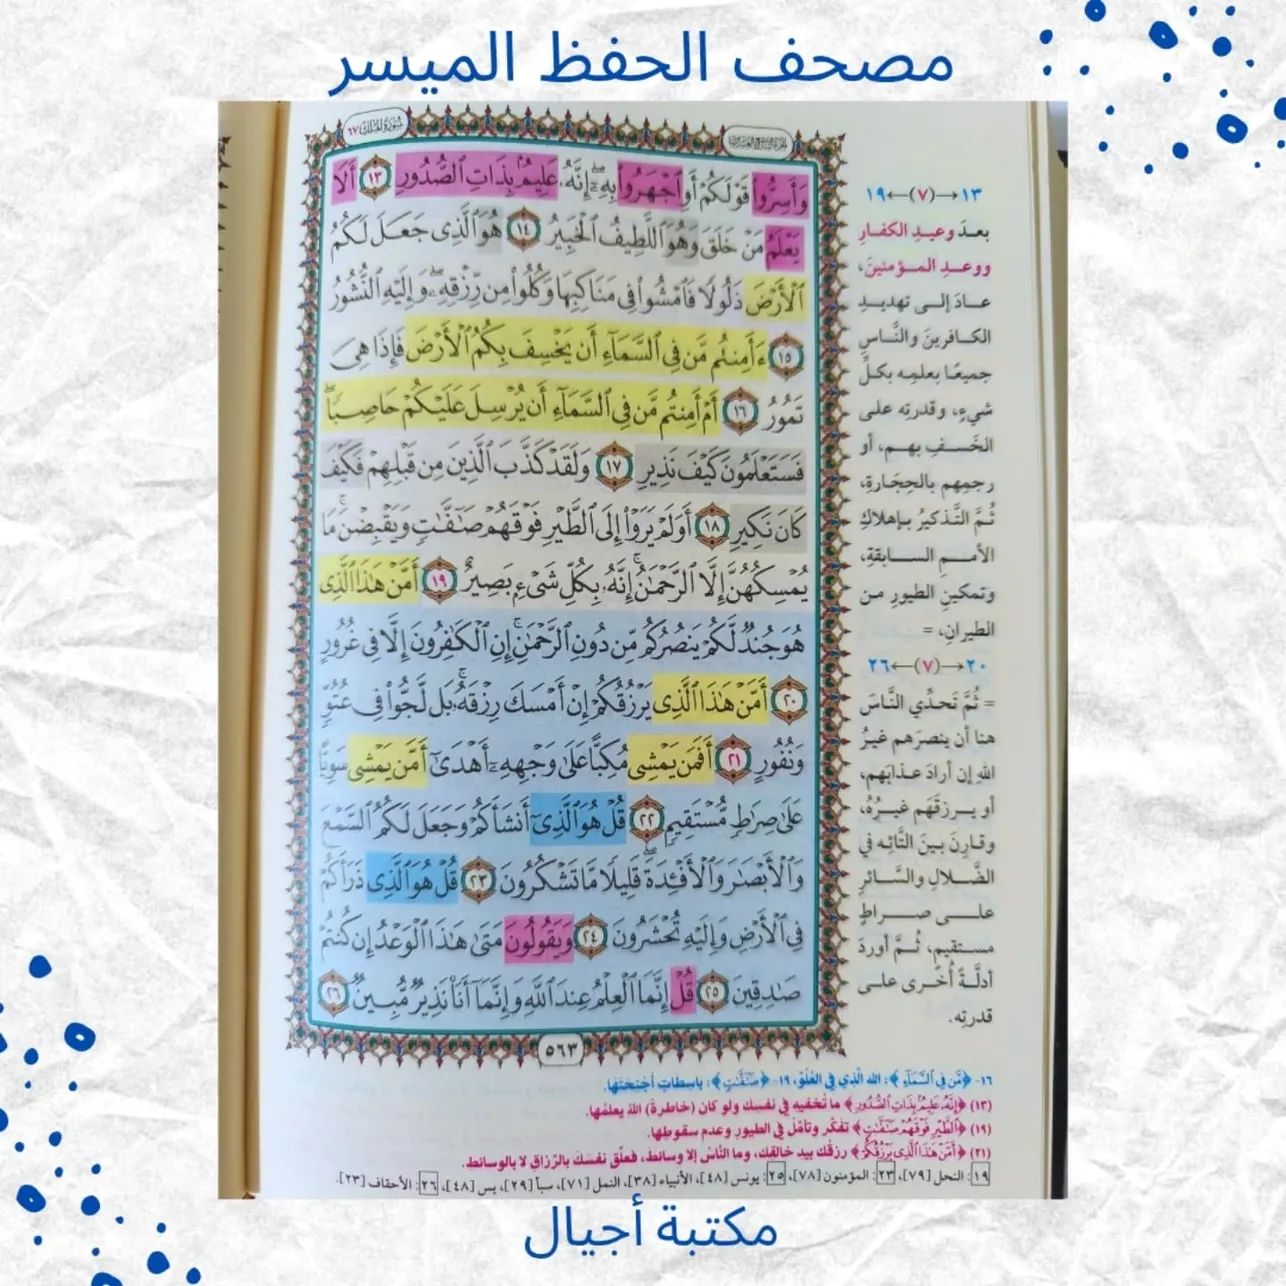 مصحف الحفظ الميسر
سُورَةُ المُلْكِ ٦٧
وَأَسِرُّوا۟ قَوْلَكُمْ أَوِ ٱجْهَرُوا۟ بِهِۦٓ ۖ إِنَّهُۥ عَلِيمٌۢ بِذَاتِ ٱلصُّدُورِ ١٣ أَلَا
يَعْلَمُ مَنْ خَلَقَ وَهُوَ ٱللَّطِيفُ ٱلْخَبِيرُ ١٤ هُوَ ٱلَّذِى جَعَلَ لَكُمُ
ٱلْأَرْضَ ذَلُولًا فَٱمْشُوا۟ فِى مَنَاكِبِهَا وَكُلُوا۟ مِن رِّزْقِهِۦ ۖ وَإِلَيْهِ ٱلنُّشُورُ
١٥ ءَأَمِنتُم مَّن فِى ٱلسَّمَآءِ أَن يَخْسِفَ بِكُمُ ٱلْأَرْضَ فَإِذَا هِىَ
تَمُورُ ١٦ أَمْ أَمِنتُم مَّن فِى ٱلسَّمَآءِ أَن يُرْسِلَ عَلَيْكُمْ حَاصِبًا ۖ
فَسَتَعْلَمُونَ كَيْفَ نَذِيرِ ١٧ وَلَقَدْ كَذَّبَ ٱلَّذِينَ مِن قَبْلِهِمْ فَكَيْفَ
كَانَ نَكِيرِ ١٨ أَوَلَمْ يَرَوْا۟ إِلَى ٱلطَّيْرِ فَوْقَهُمْ صَـٰٓفَّـٰتٍ وَيَقْبِضْنَ ۚ مَا
يُمْسِكُهُنَّ إِلَّا ٱلرَّحْمَـٰنُ ۚ إِنَّهُۥ بِكُلِّ شَىْءٍۭ بَصِيرٌ ١٩ أَمَّنْ هَـٰذَا ٱلَّذِى
هُوَ جُندٌ لَّكُمْ يَنصُرُكُم مِّن دُونِ ٱلرَّحْمَـٰنِ ۚ إِنِ ٱلْكَـٰفِرُونَ إِلَّا فِى غُرُورٍ
٢٠ أَمَّنْ هَـٰذَا ٱلَّذِى يَرْزُقُكُمْ إِنْ أَمْسَكَ رِزْقَهُۥ ۚ بَل لَّجُّوا۟ فِى عُتُوٍّ
وَنُفُورٍ ٢١ أَفَمَن يَمْشِى مُكِبًّا عَلَىٰ وَجْهِهِۦٓ أَهْدَىٰٓ أَمَّن يَمْشِى سَوِيًّا
عَلَىٰ صِرَٰطٍ مُّسْتَقِيمٍ ٢٢ قُلْ هُوَ ٱلَّذِىٓ أَنشَأَكُمْ وَجَعَلَ لَكُمُ ٱلسَّمْعَ
وَٱلْأَبْصَـٰرَ وَٱلْأَفْـِٔدَةَ ۖ قَلِيلًا مَّا تَشْكُرُونَ ٢٣ قُلْ هُوَ ٱلَّذِى ذَرَأَكُمْ
فِى ٱلْأَرْضِ وَإِلَيْهِ تُحْشَرُونَ ٢٤ وَيَقُولُونَ مَتَىٰ هَـٰذَا ٱلْوَعْدُ إِن كُنتُمْ
صَـٰدِقِينَ ٢٥ قُلْ إِنَّمَا ٱلْعِلْمُ عِندَ ٱللَّهِ وَإِنَّمَآ أَنَا۠ نَذِيرٌ مُّبِينٌ ٢٦
٥٦٣
١٣→(٧)←١٩
بعدَ وعيدِ الكفارِ
ووعـدِ المـؤمنينَ،
عـادَ إلـى تهديـدِ
الكـافـرينَ والنَّـاسِ
جميعًا بعلمِه بكلِّ
شيءٍ، وقدرتِه على
الخَسفِ بهم، أو
رجمِهم بالحِجَارةِ،
ثُـمَّ التَّذكيرُ بـإهلاكِ
الأممِ السـابقةِ،
وتمكينِ الطيورِ مـن
الطيرانِ، =
٢٠→(٧)←٢٦
= ثُمَّ تَحدِّي النَّاسَ
هنا أن ينصرَهم غيرُ
اللهِ إن أرادَ عذابَهم،
أو يـرزقَهم غيـرُهُ،
وقارنَ بينَ التَّائِه في
الضَّـلالِ والسَّـائرِ
علـى صـراطٍ
مستقيمٍ، ثُـمَّ أوردَ
أدلَّـةً أُخْـرى علـى
قدرتِه.
١٦- ﴿مَّن فِي ٱلسَّمَآءِ﴾: الله الَّذِي في العُلُوِّ، ١٩- ﴿صَـٰٓفَّـٰتٍ﴾: باسِطاتٍ أجْنحتَها.
(١٣) ﴿إِنَّهُۥ عَلِيمٌۢ بِذَاتِ ٱلصُّدُورِ﴾ ما تُخفيه في نفسِك ولو كان (خاطرة) اللهُ يعلمُها.
(١٩) ﴿ٱلطَّيْرِ فَوْقَهُمْ صَـٰٓفَّـٰتٍ﴾ تفكَّر وتأمَّل في الطيورِ وعدم سقوطِها.
(٢١) ﴿أَمَّنْ هَـٰذَا ٱلَّذِى يَرْزُقُكُمْ﴾ رزقُك بيدِ خالقِك، وما النَّاسُ إلا وسائط، فعلِّق نفسَك بالرَّزاق لا بالوسائط.
١٩: النحل [٧٩]، ٢٣: المؤمنون [٧٨]، ٢٥: يونس [٤٨]، الأنبياء [٣٨]، النمل [٧١]، سبأ [٢٩]، يس [٤٨]، ٢٦: الأحقاف [٢٣].
مكتبة أجيال